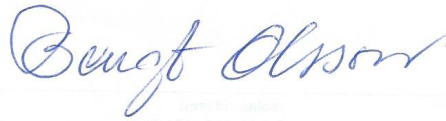 Bengt Olsson